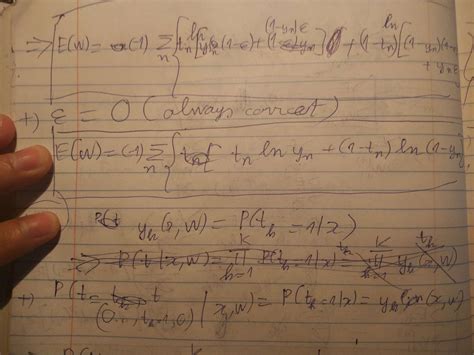 => E(w) = (-1) Σ_n { t_n ln [ y_n(1-ε) + (1-y_n)ε ] + (1-t_n) ln [ (1-y_n)(1-ε) + y_n ε
+) ε = 0 (always correct)
E(w) = (-1) Σ_n { t_n ln y_n + (1-t_n) ln (1-y_n)
y_k(x, w) = P(t_k = 1 | x)
=> P(t | x, w) = ∏_{k=1}^{K} P(t_k = 1 | x)^{t_k} = ∏^{K} y_k(x, w)^{t_k}
+) P(t = t (0.., t_k=1, 0) | x, w) = P(t_k = 1 | x) = y_k (x, w)